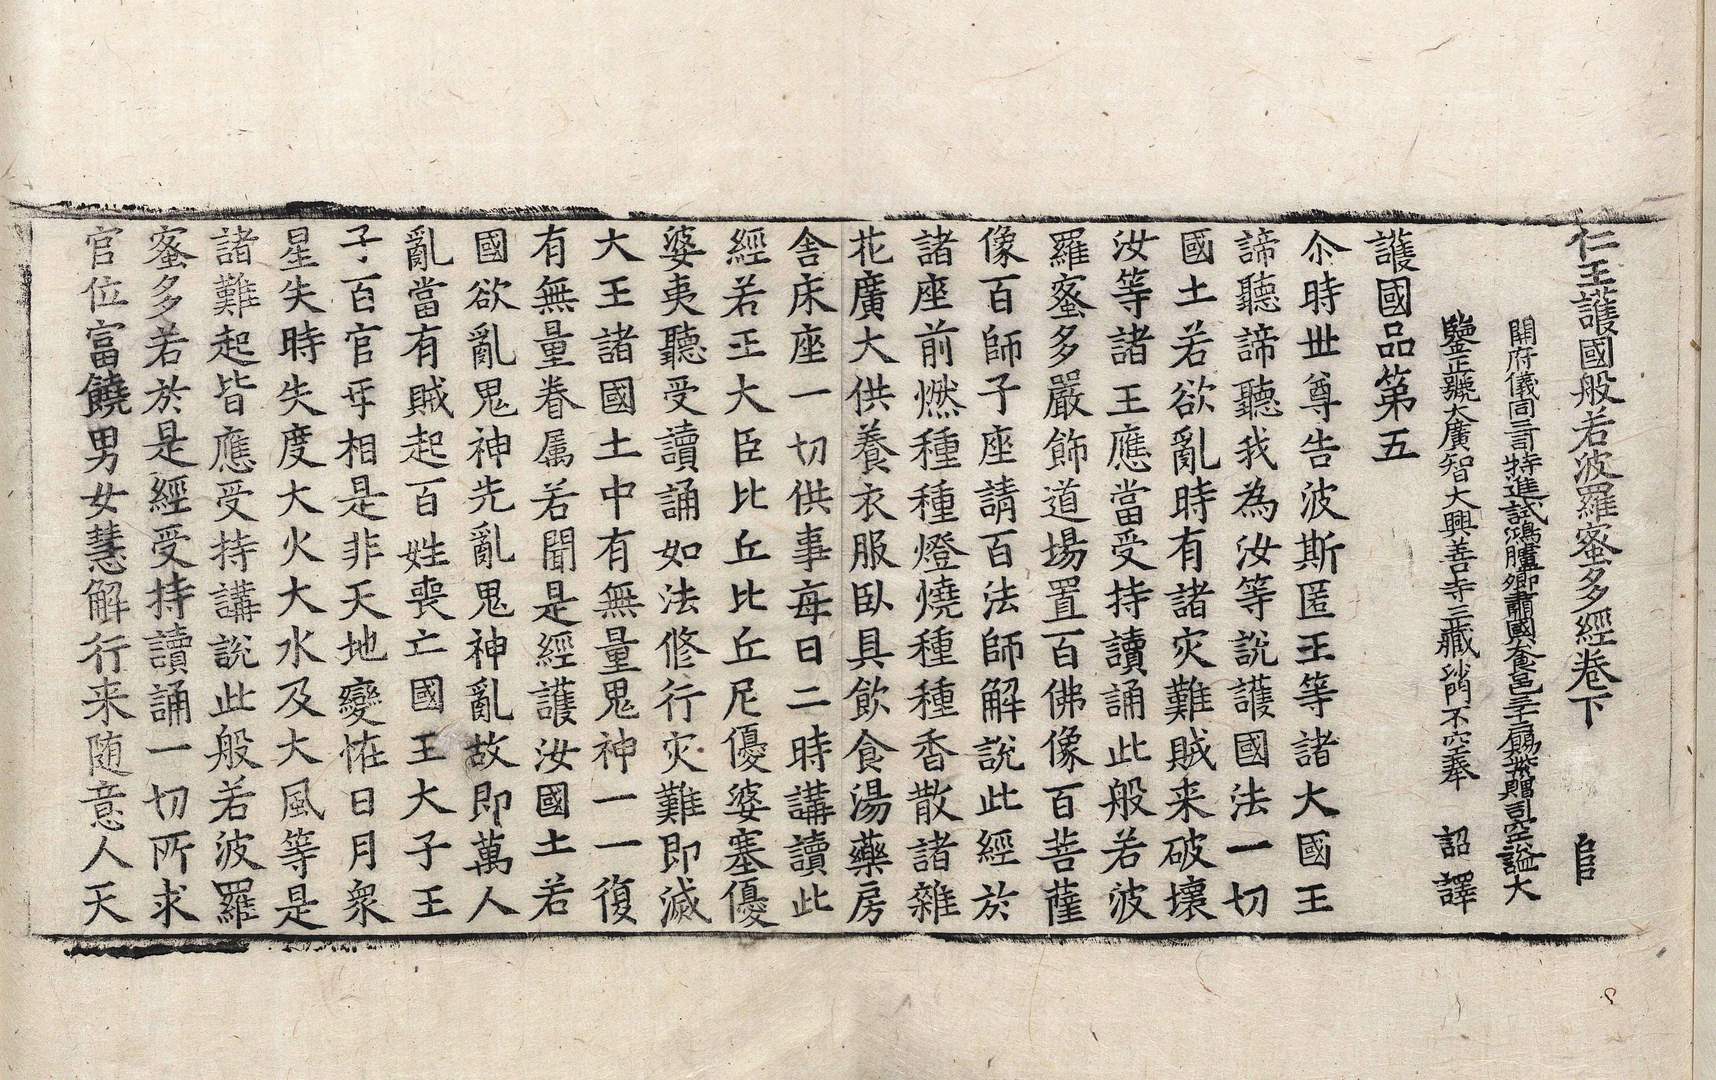 仁王護國般若波羅蜜多經卷下
開府儀同三司特進試鴻臚卿肅國公食邑三千戶賜紫贈司空謚大
鑒正號大廣智大興善寺三藏沙門不空奉 詔譯
護國品第五
尒時世尊告波斯匿王等諸大國王
諦聽諦聽我為汝等說護國法一切
國土若欲亂時有諸灾難賊来破壞
汝等諸王應當受持讀誦此般若波
羅蜜多嚴飾道場置百佛像百菩薩
像百師子座請百法師解說此經於
諸座前燃種種燈燒種種香散諸雜
花廣大供養衣服臥具飲食湯藥房
舍床座一切供事每日二時講讀此
經若王大臣比丘比丘尼優婆塞優
婆夷聽受讀誦如法修行灾難即滅
大王諸國土中有無量鬼神一一復
有無量眷属若聞是經護汝國土若
國欲亂鬼神先亂鬼神亂故即萬人
亂當有賊起百姓喪亡國王大子王
子百官互相是非天地變恠日月衆
星失時失度大火大水及大風等是
諸難起皆應受持講說此般若波羅
蜜多若於是經受持讀誦一切所求
官位富饒男女慧解行来随意人天